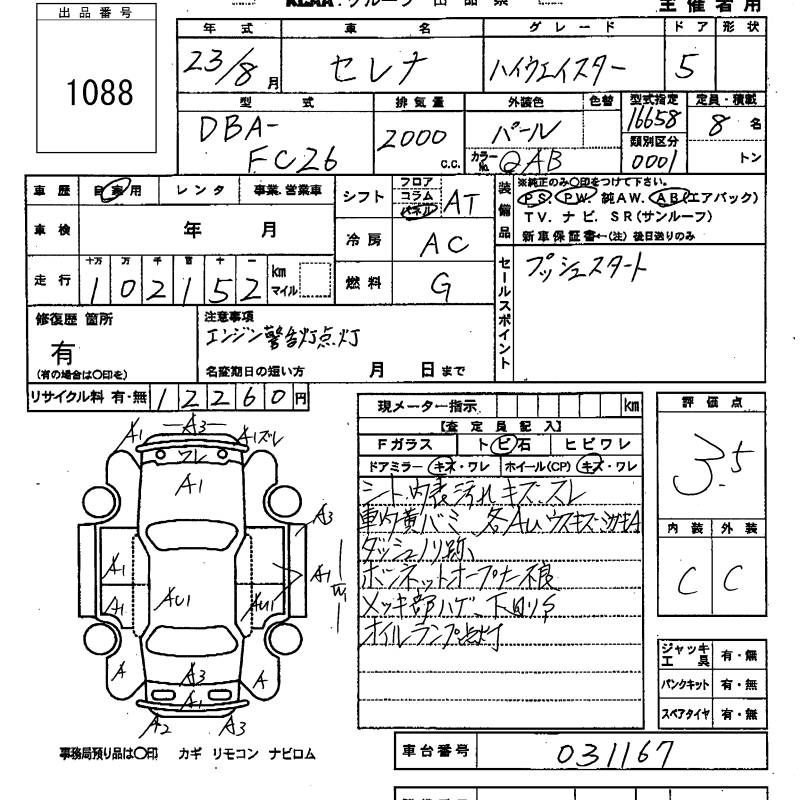 KCAA・グループ 出品票
主催者用
出品番号
1088
年式 車名 グレード ドア 形状
23/8月 セレナ ハイウェイスター 5
型式 排気量 外装色 色替 型式指定 定員・積載
DBA-FC26 2000c.c. パール 16658 8名
カラーNo. QAB 類別区分 0001 トン
車歴 自家用 レンタ 事業、営業車
シフト フロア コラム パネル AT
装備品
※純正のみ〇印をつけて下さい。
PS. PW. 純AW. AB(エアバック)
TV. ナビ. SR(サンルーフ)
新車保証書←(注)後日送りのみ
車検 年 月
冷房 AC
走行 十万 万 千 百 十 一
102152 km マイル
燃料 G
セールスポイント
プッシュスタート
修復歴 箇所
有
(有の場合は〇印を)
注意事項
エンジン警告灯点灯
名変期日の短い方 月 日まで
リサイクル料 有・無 12260円
現メーター指示 km
【査定員記入】
Fガラス トビ石 ヒビワレ
ドアミラー キズ・ワレ ホイール(CP) キズ・ワレ
シート、内張汚れ、キズ、スレ
車内黄バミ、各AU、ウスキズ、
ダッシュノリ跡、
ボンネットオープナー不良
メッキ部ハゲ、下回りS
オイルランプ点灯
評価点
3.5
内装 外装
C C
ジャッキ 工具 有・無
パンクキット 有・無
スペアタイヤ 有・無
A1 A3 A1ズレ
ワレ
A1
A3
A1 A1 W1
A1 AU1 AU1
A A3 A
A1
A2 A3
事務局預り品は〇印 カギ リモコン ナビロム
車台番号 031167